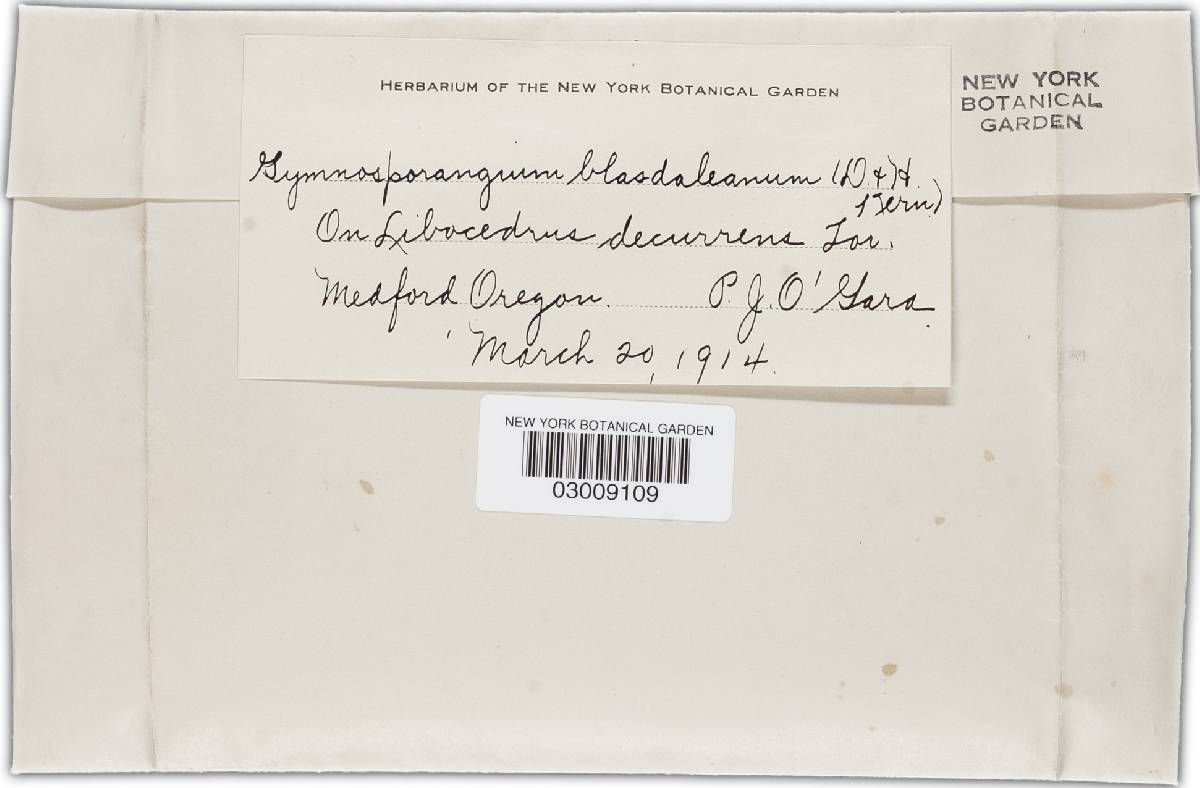 HERBARIUM OF THE NEW YORK BOTANICAL GARDEN
NEW YORK
BOTANICAL
GARDEN
Gymnosporangium blasdaleanum (D. & H.
) Kern)
On Libocedrus decurrens Tor.
Medford Oregon. P. J. O'Gara
March 20, 1914.
NEW YORK BOTANICAL GARDEN
03009109